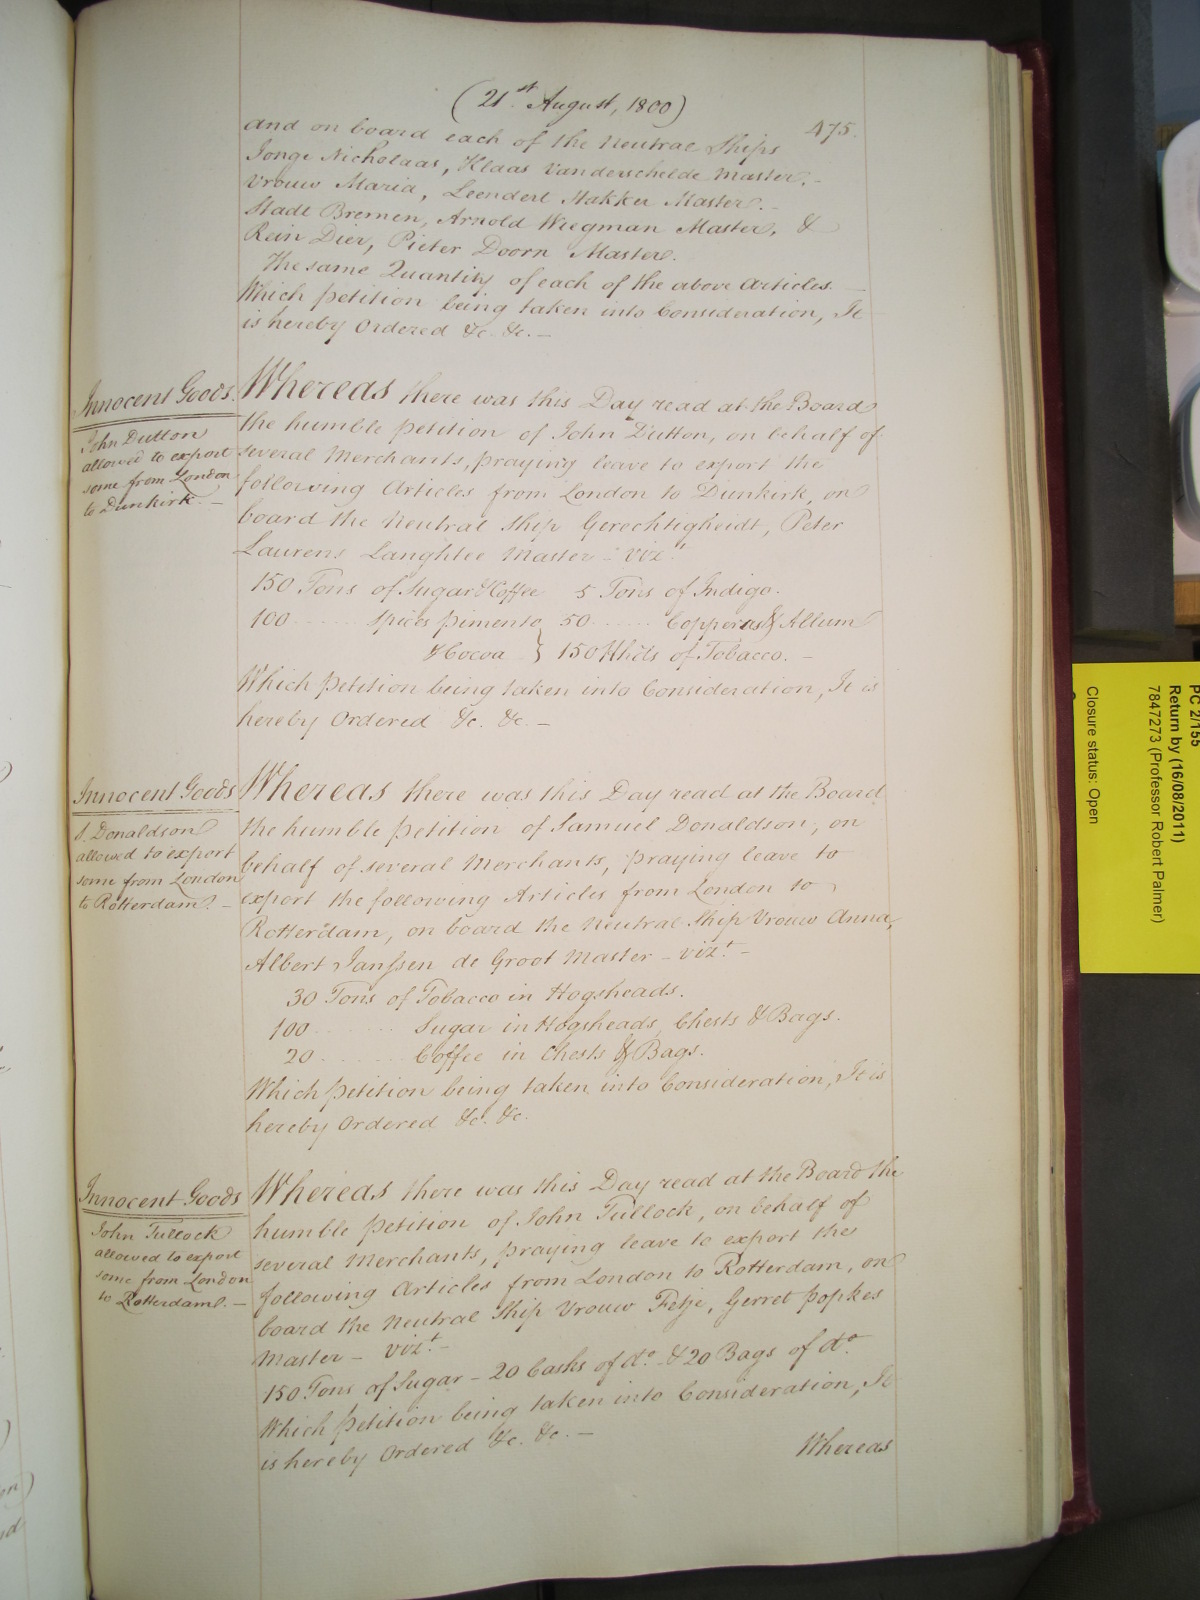 (21st August, 1800)
475.
and on board each of the Neutral Ships
Jonge Nicholaas, Klaas Vanderschelde Master. -
Vrouw Maria, Leendert Hakker Master. -
Stadt Bremen, Arnold Wiegman Master, &
Rein Dier, Pieter Doorn Master.
The same Quantity of each of the above Articles. -
Which petition being taken into Consideration, It
is hereby Ordered &c. &c. -
Innocent Goods.
John Dutton
allowed to export
some from London
to Dunkirk. -
Whereas there was this Day read at the Board
the humble petition of John Dutton, on behalf of
several Merchants, praying leave to export the
following Articles from London to Dunkirk, on
board the Neutral Ship Gerechtigheidt, Peter
Laurens Langhlee Master - vizt.
150 Tons of Sugar & Coffee 5 Tons of Indigo.
100 ...... Spices pimento 50 ...... Copperas & Allum
& Cocoa } 150 Hhds of Tobacco. -
Which petition being taken into Consideration, It is
hereby Ordered &c. &c. -
Innocent Goods
S. Donaldson
allowed to export
some from London
to Rotterdam. -
Whereas there was this Day read at the Board
the humble petition of Samuel Donaldson, on
behalf of several Merchants, praying leave to
export the following Articles from London to
Rotterdam, on board the Neutral Ship Vrouw Anna,
Albert Janssen de Groot Master - vizt. -
30 Tons of Tobacco in Hogsheads.
100 ........ Sugar in Hogsheads, Chests & Bags.
20 ........ Coffee in Chests & Bags.
Which petition being taken into Consideration, It is
hereby Ordered &c. &c.
Innocent Goods
John Tullock
allowed to export
some from London
to Rotterdam. -
Whereas there was this Day read at the Board the
humble petition of John Tullock, on behalf of
several Merchants, praying leave to export the
following Articles from London to Rotterdam, on
board the Neutral Ship Vrouw Fetje, Gerret popkes
Master - vizt. -
150 Tons of Sugar - 20 Casks of do. & 20 Bags of do.
Which petition being taken into Consideration, It
is hereby Ordered &c. &c. -
Whereas
PC 2/155
Return by (16/08/2011)
7847273 (Professor Robert Palmer)
Closure status: Open